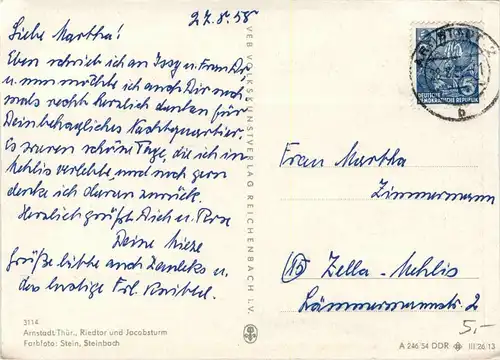 27.8.58
Liebe Martha!
Eben schrieb ich an Issy u. Frau
u. nun möchte ich auch Dir noch
mals recht herzlich danken für
Dein behagliches Nachtquartier.
Es waren schöne Tage, die ich in
Mehlis verlebte, und noch gern
denke ich daran zurück.
Herzlich grüßt Dich u.
Deine
Grüße bitte auch u.
das lustige Frl.
3114
Arnstadt Thür., Riedtor und Jacobsturm
Farbfoto: Stein, Steinbach
VEB VOLKSKUNSTVERLAG REICHENBACH I. V.
ARNSTADT
b
5
DEUTSCHE
DEMOKRATISCHE REPUBLIK
Frau Martha
Zimmermann
15 Zella-Mehlis
Lämmermannstr. 2
5,-
A 246/54 DDR III/26/13